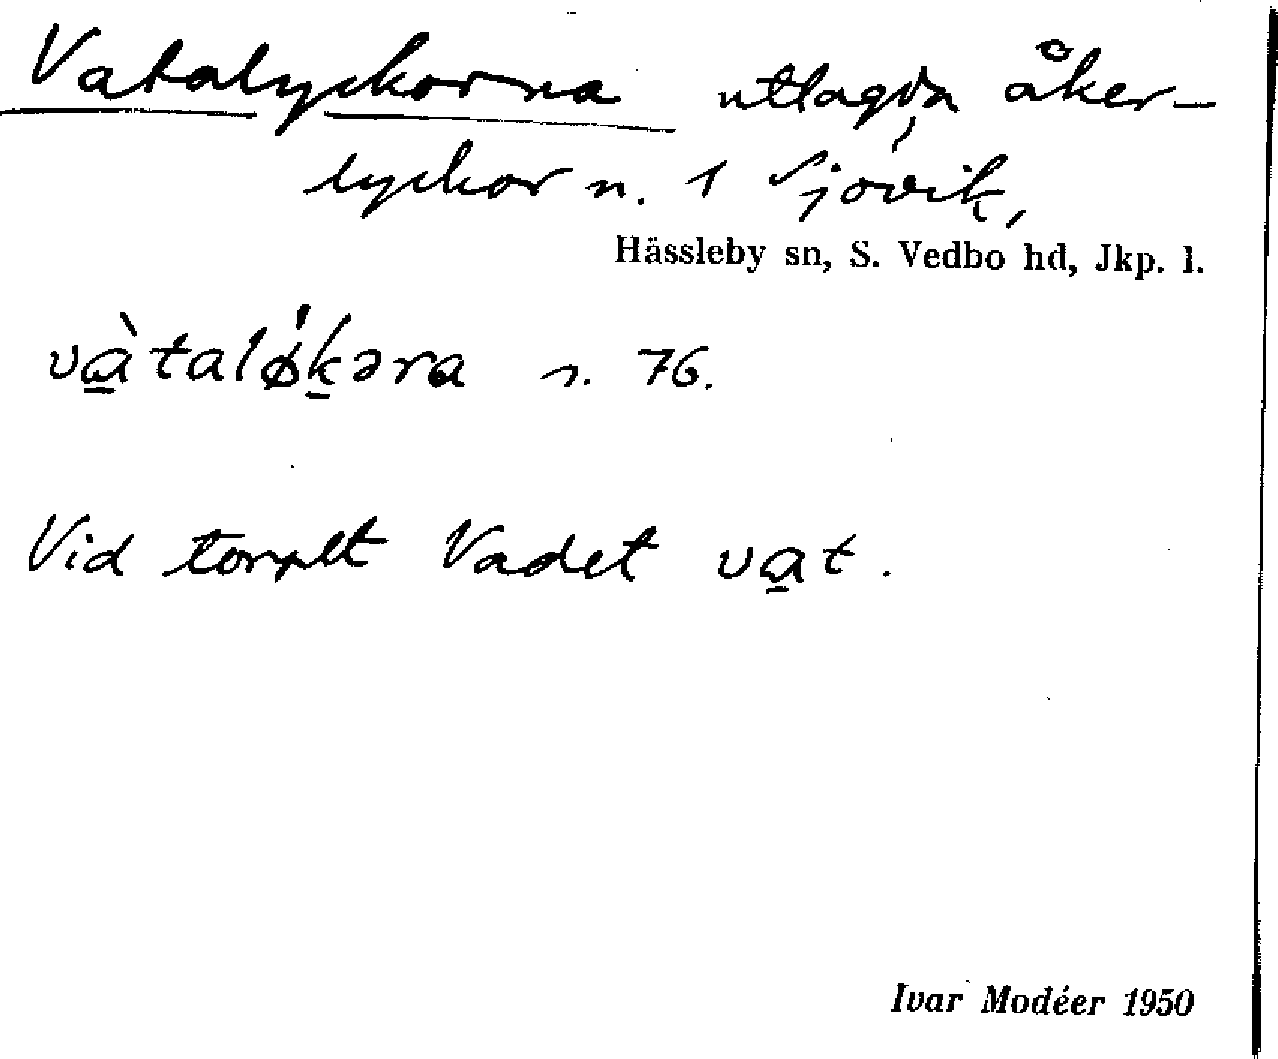 Vatalyckorna utlagda åker-
lyckor n. 1 Sjövik,
Hässleby sn, S. Vedbo hd, Jkp. l.
và̱talǿḵəra n. 76.
Vid torpet Vadet va̱t.
Ivar Modéer 1950